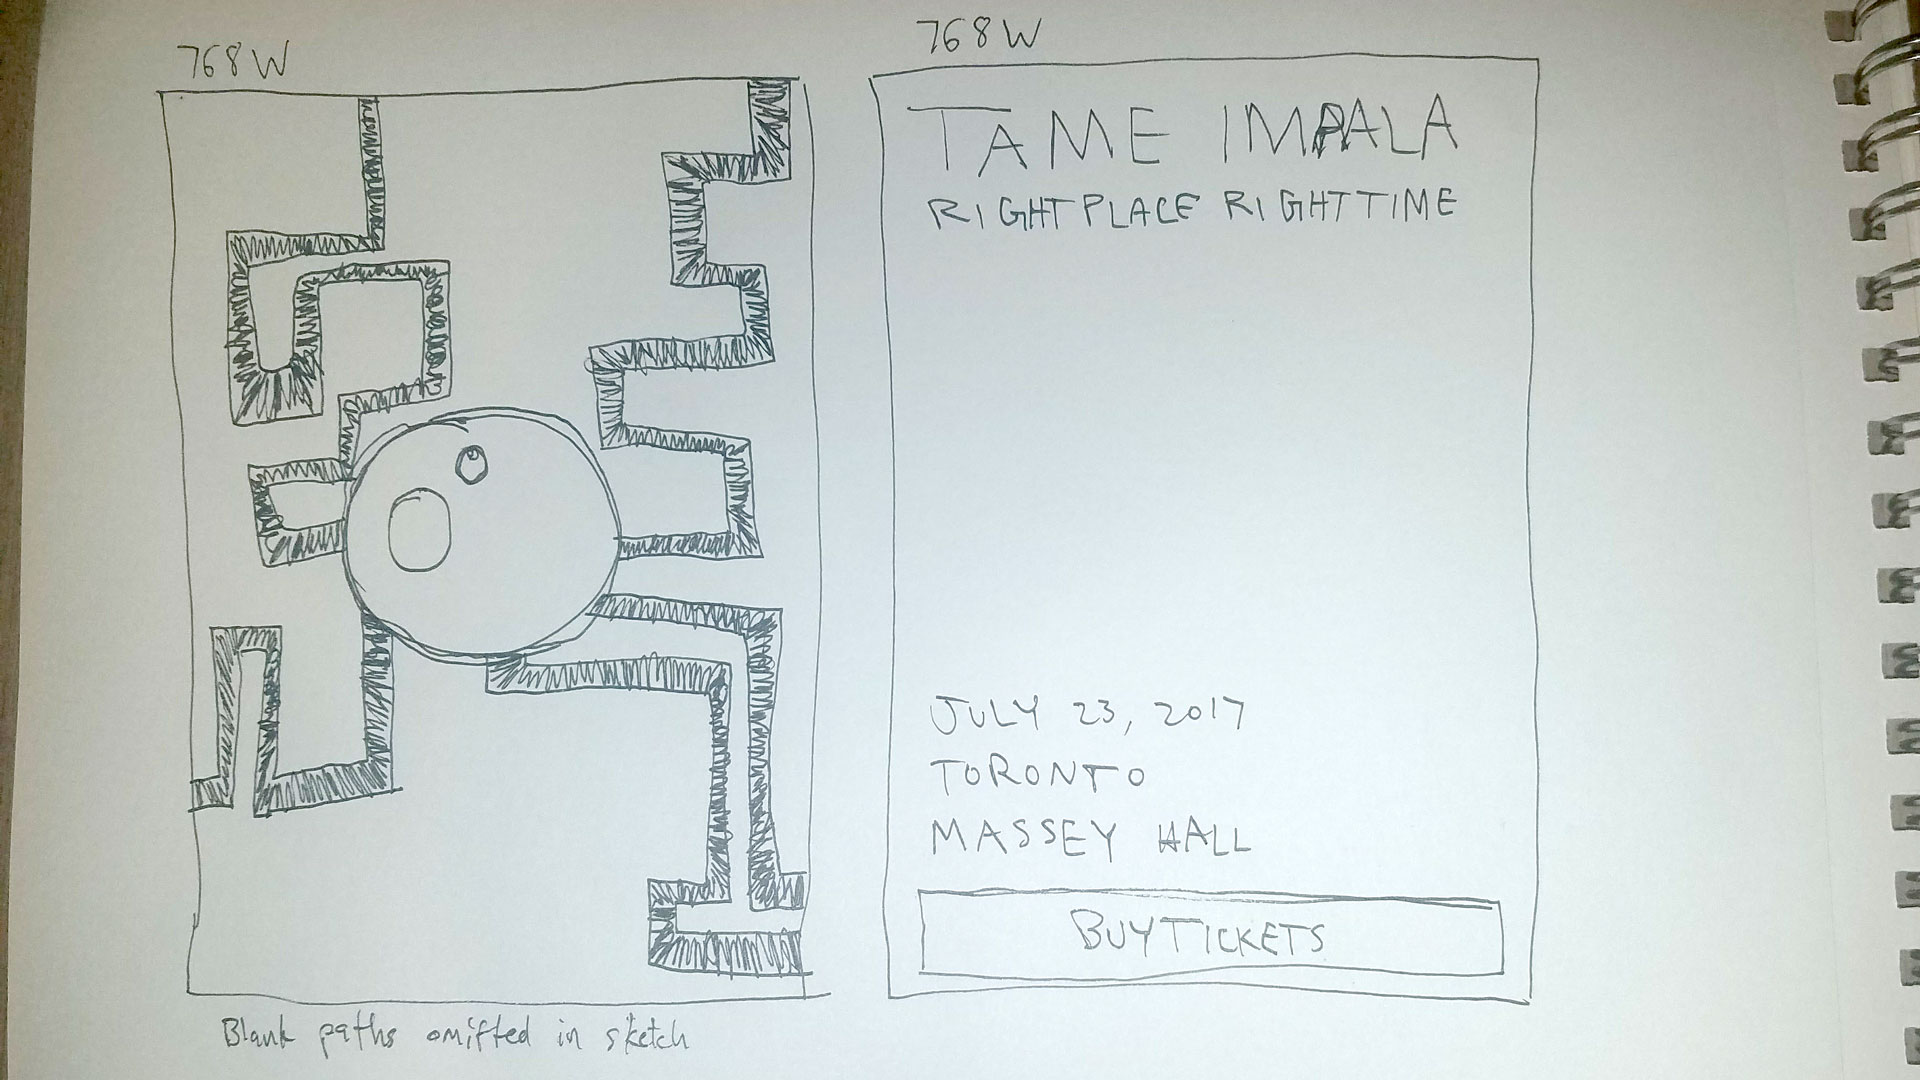 768W
Blank paths omitted in sketch
768W
TAME IMPALA
RIGHT PLACE RIGHT TIME
JULY 23, 2017
TORONTO
MASSEY HALL
BUY TICKETS